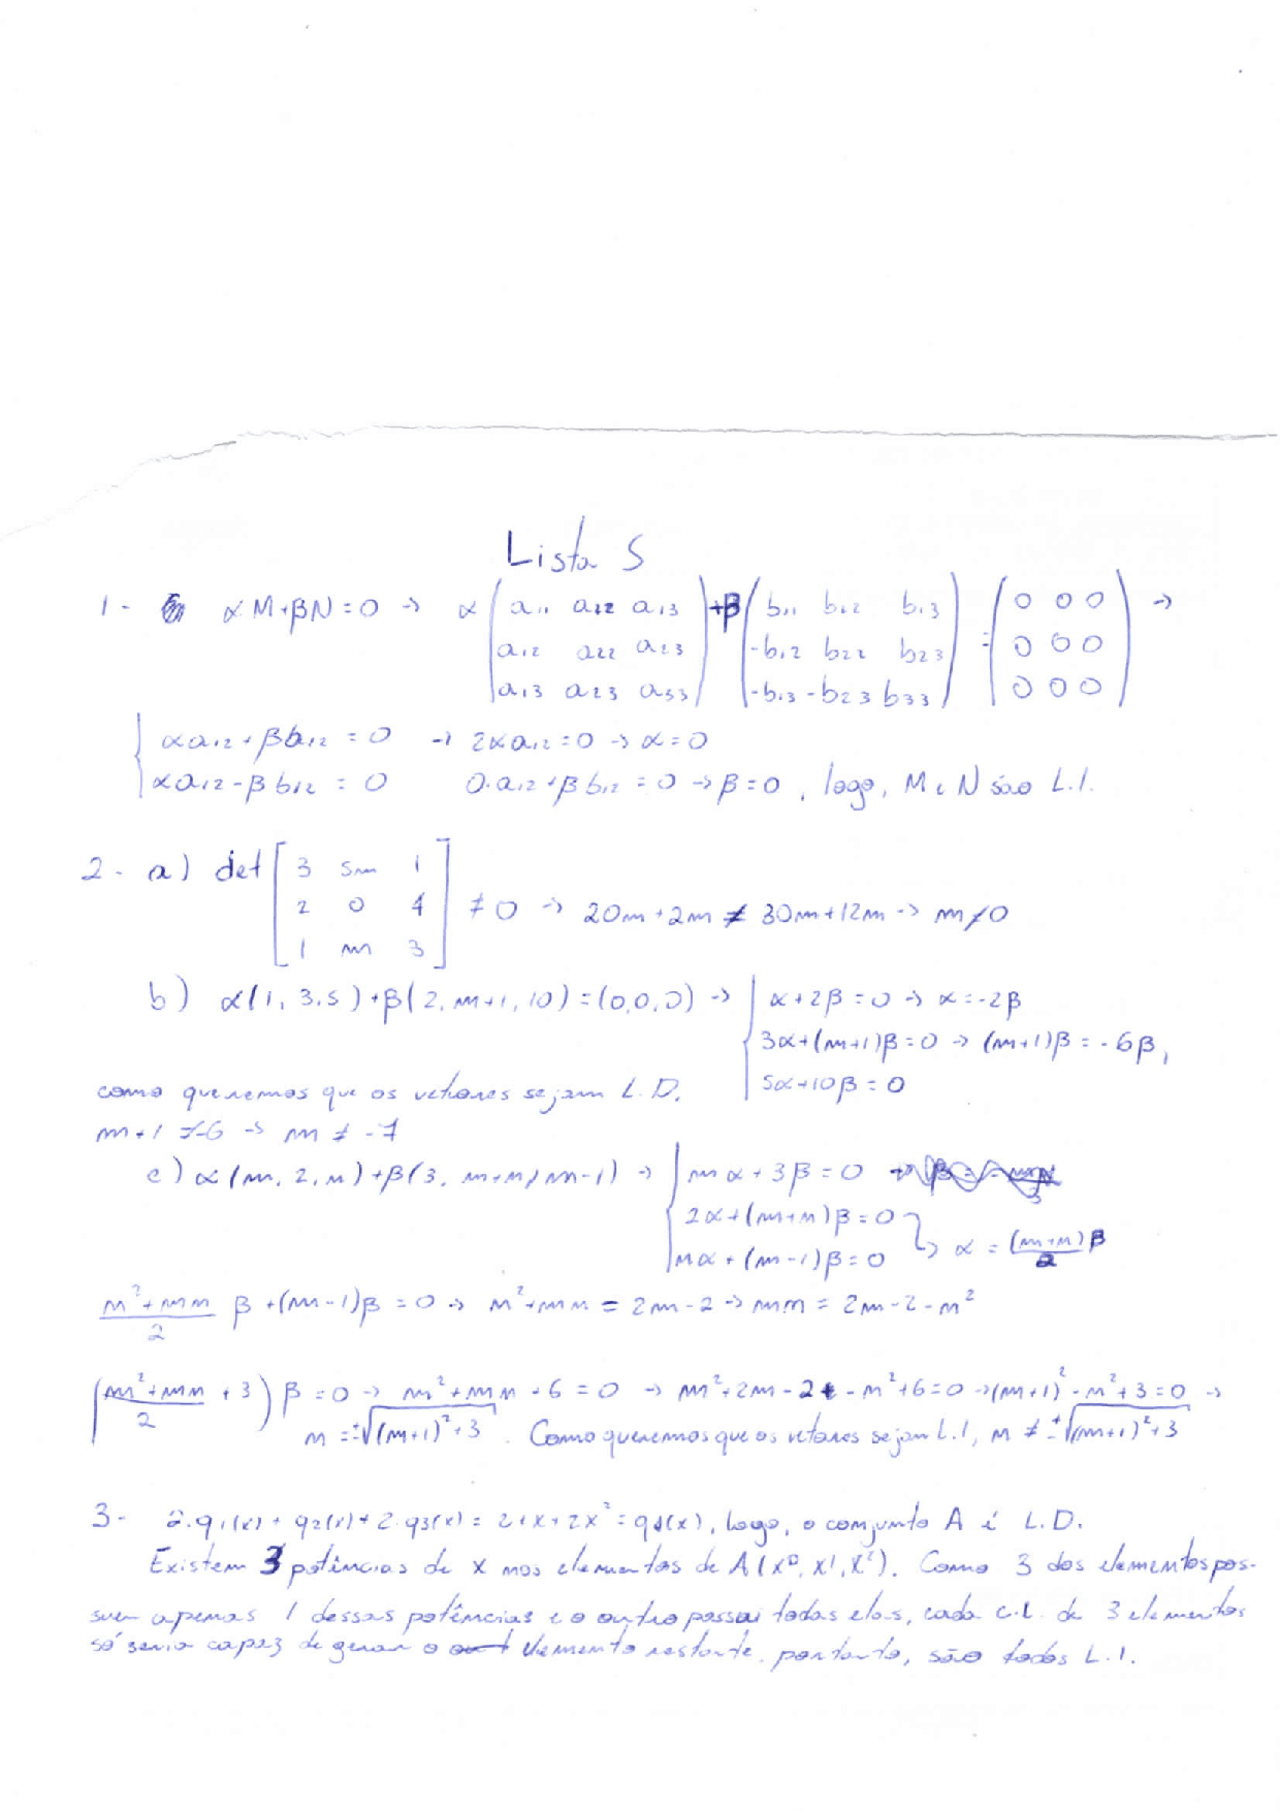 Lista 5
1- αM+βN=0 → α(a₁₁ a₁₂ a₁₃ +β(b₁₁ b₁₂ b₁₃ =(0 0 0) →
a₁₂ a₂₂ a₂₃ -b₁₂ b₂₂ b₂₃ 0 0 0
a₁₃ a₂₃ a₃₃) -b₁₃ -b₂₃ b₃₃) 0 0 0
{αa₁₂+βb₁₂=0 → 2αa₁₂=0 → α=0
αa₁₂-βb₁₂=0 0.a₁₂+βb₁₂=0 → β=0, logo, M e N são L.I.
2- a) det [3 5m 1
2 0 4 ≠0 → 20m+2m ≠ 30m+12m → m≠0
1 m 3]
b) α(1,3,5)+β(2,m+1,10)=(0,0,0) → {α+2β=0 → α=-2β
3α+(m+1)β=0 → (m+1)β=-6β,
5α+10β=0
como queremos que os vetores sejam L.D.
m+1≠-6 → m≠-7
c) α(m,2,n)+β(3,m+n,m-1) → {mα+3β=0
2α+(m+n)β=0
nα+(m-1)β=0 → α=(m+n)β/2
n²+mn/2 β+(m-1)β=0 → n²+mn=2m-2 → mn=2m-2-n²
(m²+mn/2 +3)β=0 → m²+mn+6=0 → m²+2m-2-n²+6=0 → (m+1)²-n²+3=0 →
n=±√(m+1)²+3. Como queremos que os vetores sejam L.I, n≠±√(m+1)²+3
3- 2.q₁(x)+q₂(x)+2.q₃(x)=2+x+2x²=q₄(x), logo, o conjunto A é L.D.
Existem 3 potências de x nos elementos de A(x⁰,x¹,x²). Como 3 dos elementos pos-
suem apenas 1 dessas potências e o outro possui todas elas, cada c.l. de 3 elementos
só seria capaz de gerar o elemento restante, portanto, são todos L.I.